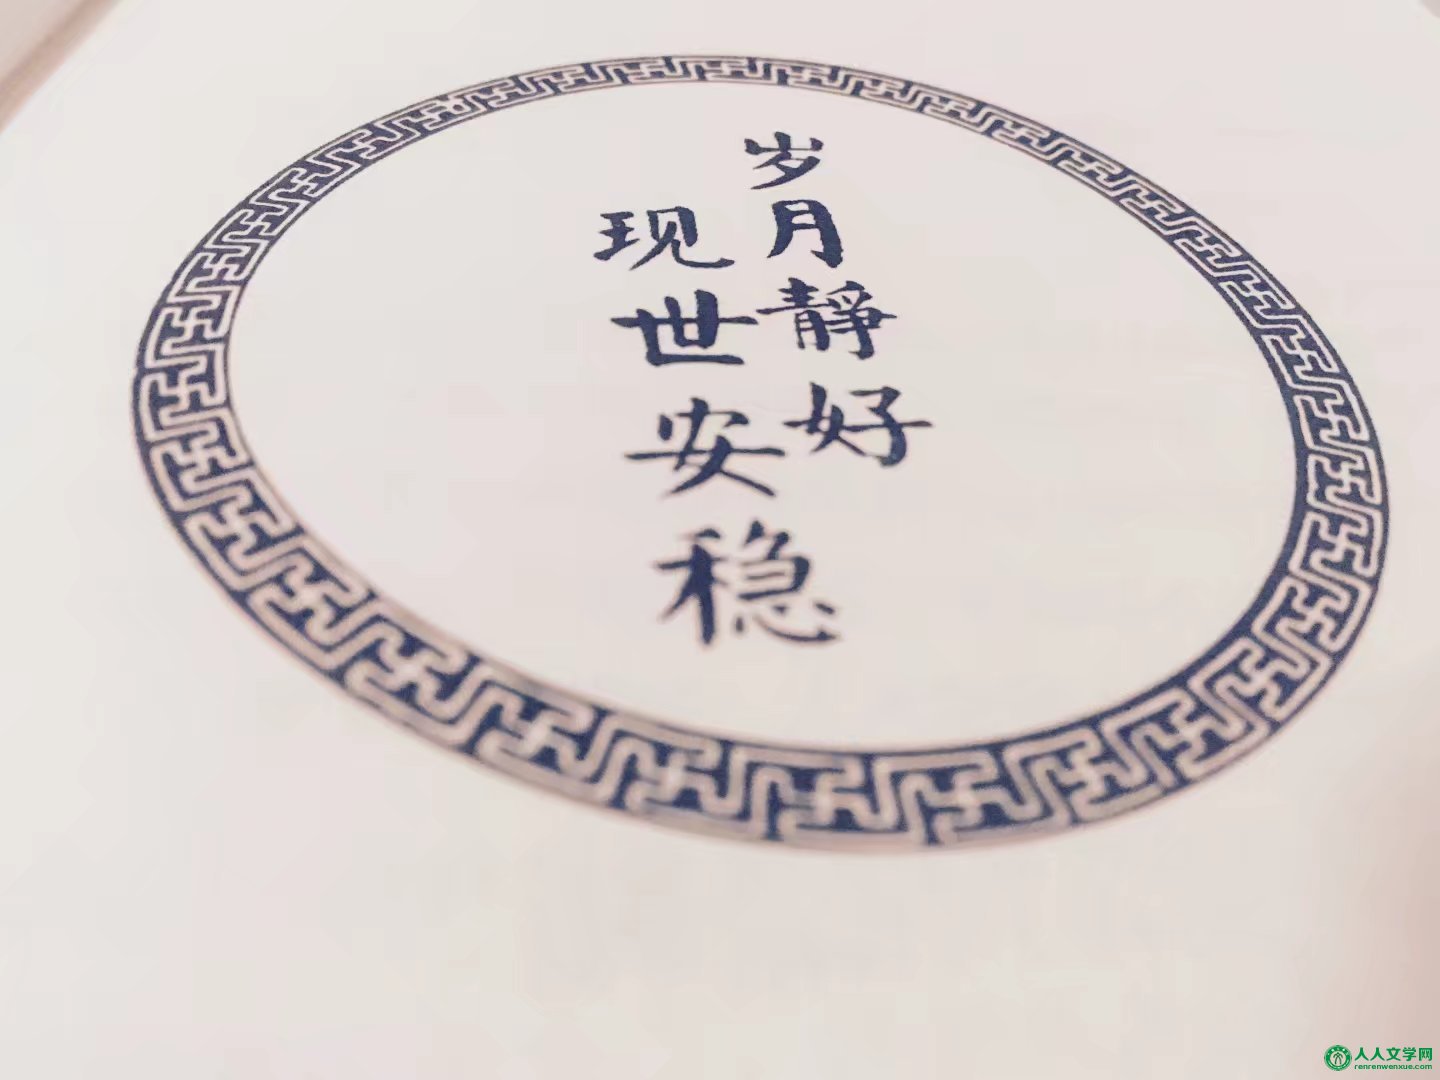 岁月靜好
现世安稳
人人文学网
renrenwenxue.com